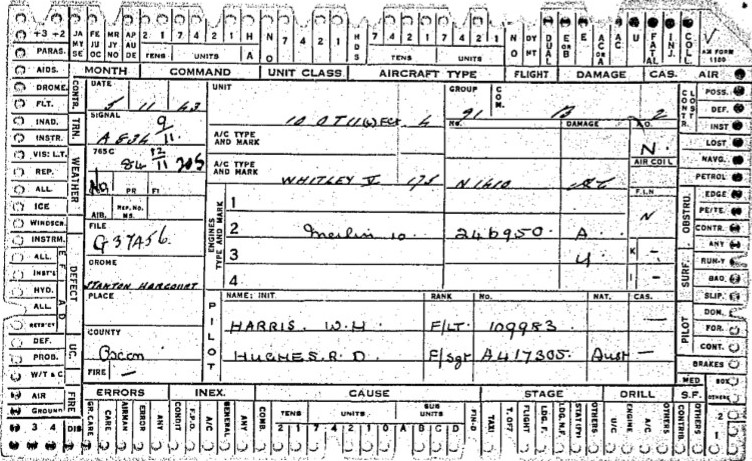 +3 +2 JA MY SE FE JU OC MR JY NO AP AU DE 2 1 7 4 2 1 H A NO 7 4 2 1 HDS 7 4 2 1 7 4 2 1 NO DY NT DUAL E OR B E AC OR A AC U FATAL INJ. COLL. AM FORM 1180
TENS UNITS TENS UNITS
PARAS.
AIDS. MONTH COMMAND UNIT CLASS. AIRCRAFT TYPE FLIGHT DAMAGE CAS. AIR
DROME. CONTR. DATE UNIT GROUP COM. CONTR. LOST POSS.
FLT. 5 11 43 91 B 2 DEF.
INAD. TRN. SIGNAL 10 OTU No. DAMAGE INST
INSTR. A 9/11 A/C TYPE AND MARK N. LOST
VIS: L.T. WEATHER 765C AIR COIL NAVG.
REP. 84 12/11 A/C TYPE AND MARK WHITLEY V N1410 PETROL
ALL. No. PR FI F.L.N EDGE
ICE AIR. REP. NO. MS. ENGINES TYPE AND MARK 1 N OBSTRU. PE/TE.
WINDSCN. FILE 2 Merlin 10. 246950 A CONTR.
INSTRM. G37A56. 3 U. K – ANY
ALL. DEFECT DROME 4 I – SURF. RUN-Y
INST'S STANTON HARCOURT BAD.
HYD. PLACE PILOT NAME: INIT. RANK No. NAT. CAS. SLIP.
ALL. HARRIS. W.H F/LT. 109983 – PILOT DOM.
RETRICY COUNTY FOR.
DEF. UC. Oxon HUGHES. R D. F/Sgt A417305. Aust – CONT.
PROB. FIRE – BRAKES
W/T & C MED BOX
AIR FIRE ERRORS INEX. CAUSE STAGE DRILL S.F. OTHERS
GROUND GR. CARE CARE AIRMAN ERROR ANY CONDIT F.J.O. A/C GENERAL ANY COMB TENS UNITS SUB UNITS TAXI T. OFF FLIGHT LDG. F. LDG. N.F. OTHERS U/C ENGINE A/C OTHERS CONTRIB. OTHERS 2
3 4 DIS 2 1 7 4 2 1 0 A B C D 1